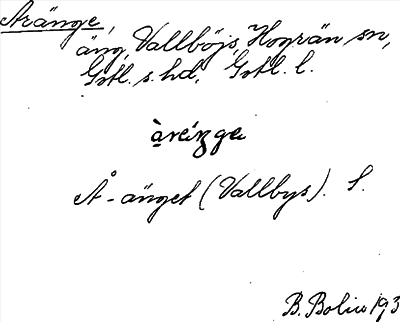 Aränge,
äng, Vallböjs, Hogrän sn,
Gotl. s. hd, Gotl. l.
Å-änget (Vallbys). S.
B. Bolin 193